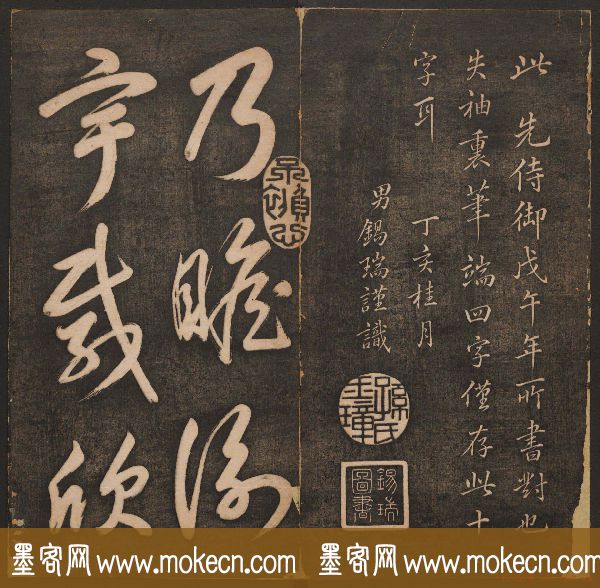 此先侍御戊午年所書對也
失袖裏筆端四字僅存此十
字耳
丁亥桂月
男錫瑞謹識
錫瑞圖書
乃瞻衡
宇載欣
墨客网 www.mokecn.com 墨客网 www.mokecn.com